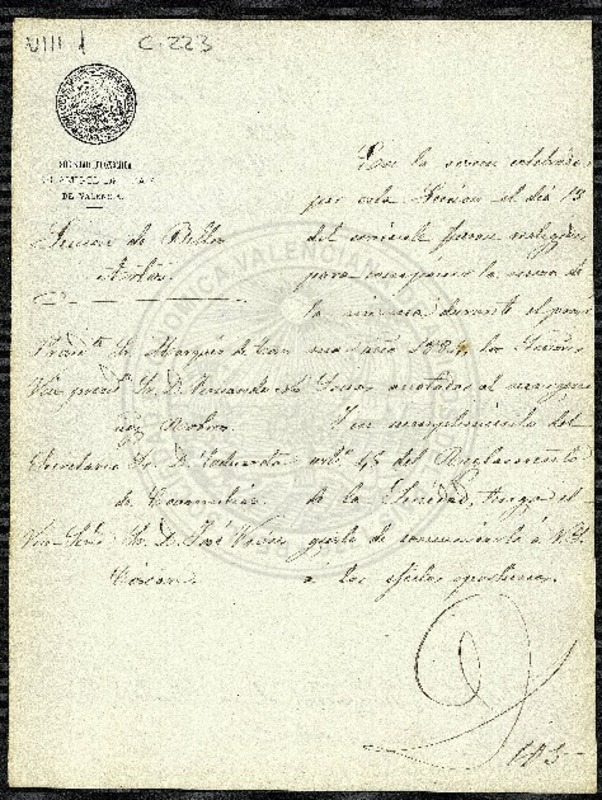 VIII 1
C-223
DE VALENCIA.
Sección de Bellas
Artes.
Presid.te Sr. Marqués de
Vice presid.te Sr. D. Fernando
Secretario Sr. D. Eduardo
de
Vice-Secrº Sr. D. José Vives
Ciscar.
En la sesion celebrada
por esta Seccion el dia 19
del corriente fueron
para componer la mesa de
la misma durante el próxi
mo año 1884, los Señores
Socios anotados al margen.
Y en cumplimiento del
artº 45 del Reglamento
de la Sociedad, tengo el
gusto de comunicarlo á V.S.
á los efectos oportunos.